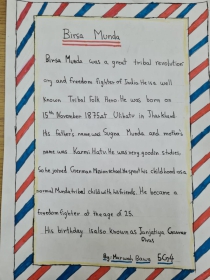 Birsa Munda
Birsa Munda was a great tribal revolution
ary and freedom fighter of India. He is a well
known Tribal Folk Hero. He was born on
15th November 1875 at Ulihatu in Jharkhand.
His father's name was Sugna Munda and mother's
name was Karmi Hatu. He was very good in studies.
So he joined German Mission school. He spent his childhood as a
normal Munda tribal child with his friends. He became a
freedom fighter at the age of 25.
His birthday is also known as Janjatiya Gaurav
Divas
By: Marwah Bawa 5G4